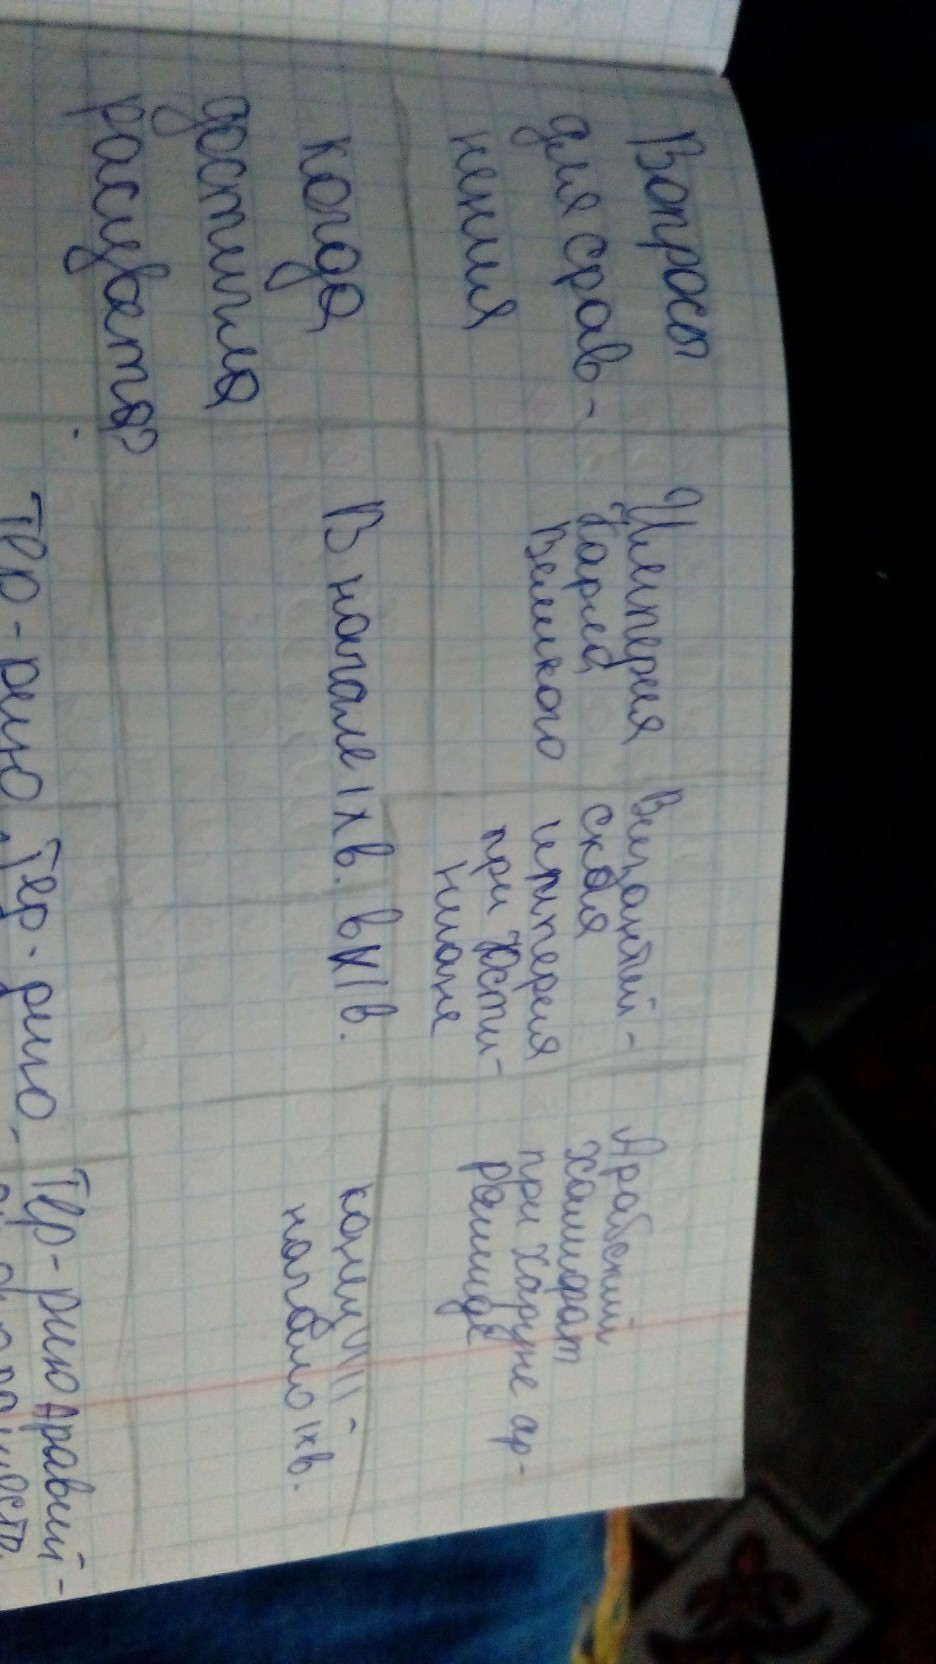 Вопросы
для срав-
нения
Империя
Карла
Великого
Византий-
ская
империя
при Юсти-
ниане
Арабский
халифат
при Харуне ар-
рашиде
когда
достигла
расцвета?
В начале IX в.
в XI в.
конец VIII -
начало IX в.
Тер-рию
Тер-рию
Тер-рию Аравий-